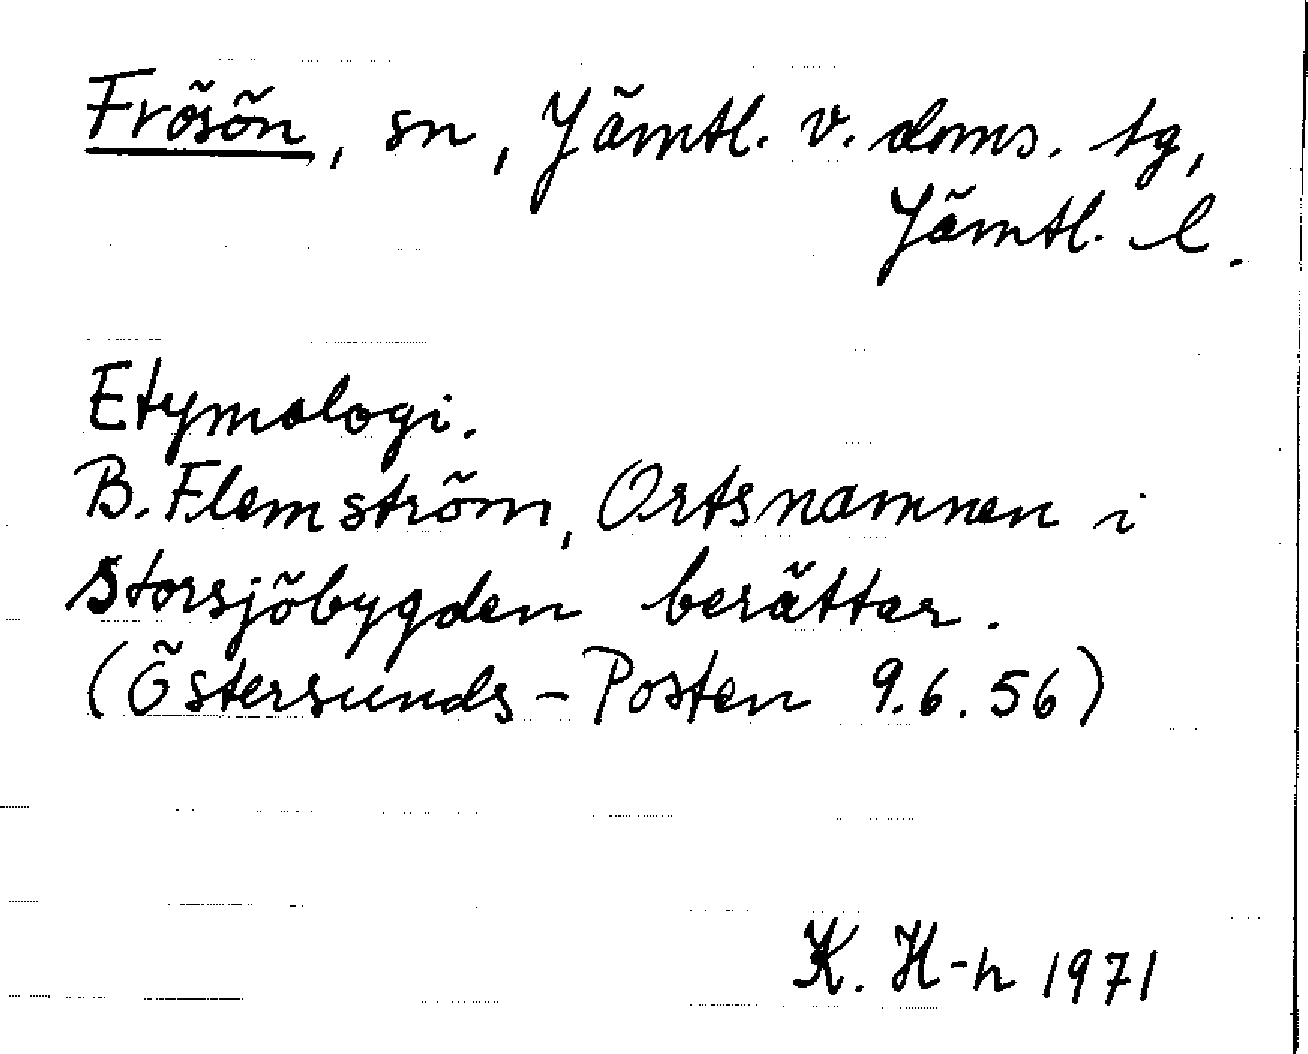 Frösön, sn, Jämtl. v. doms. tg,
Jämtl. l.
Etymologi.
B. Flemström, Ortsnamnen i
Storsjöbygden berättar.
(Östersunds-Posten 9.6.56)
K. H-n 1971